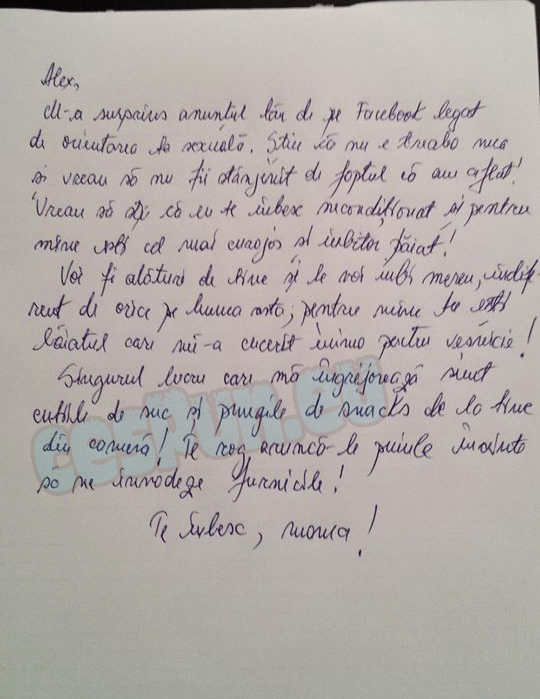 Alex,
M-a surprins anunțul tău de pe Facebook legat
de orientarea ta sexuală. Știu că nu e treaba mea
și vreau să nu fii stânjenit de faptul că am aflat!
Vreau să știi că eu te iubesc necondiționat și pentru
mine ești cel mai curajos și iubitor băiat!
Voi fi alături de tine și te voi iubi mereu, indife-
rent de orice pe lumea asta; pentru mine tu ești
băiatul care mi-a cucerit inima pentru veșnicie!
Singurul lucru care mă îngrijorează sunt
cutiile de suc și pungile de snacks de la tine
din cameră! Te rog aruncă-le puiule înainte
să ne invadeze furnicile!
Te iubesc, mama!
cesPun.eu